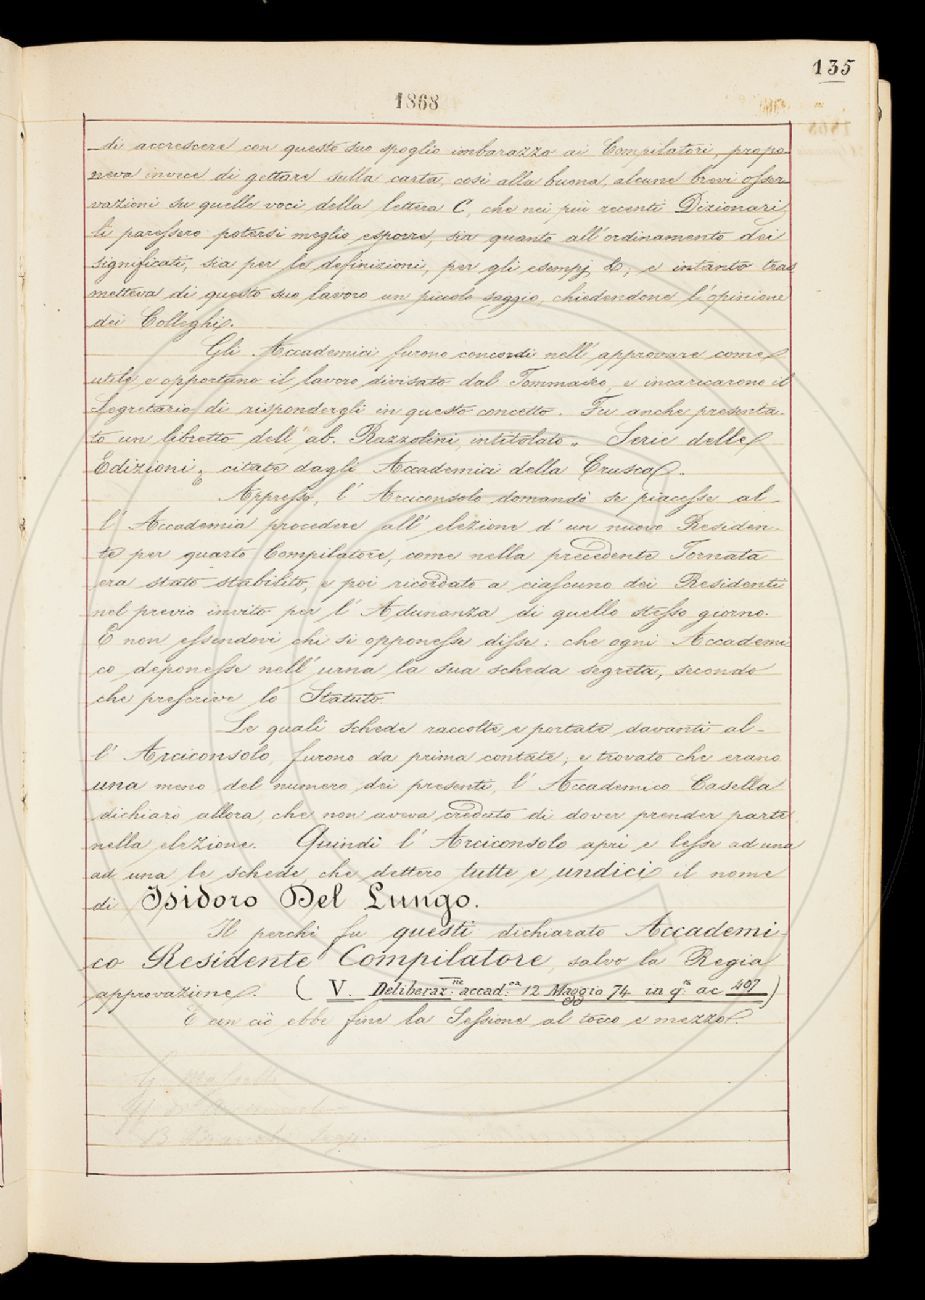 135
1868
di accrescere con questo suo spoglio imbarazzo ai Compilatori, propo
neva invece di gettare sulla carta, così alla buona, alcune brevi osser
vazioni su quelle voci della lettera C, che nei più recenti Dizionari
li paressero potersi meglio esporre, sia quanto all'ordinamento dei
significati, sia per le definizioni, per gli esempj, &; e intanto tras
metteva di questo suo lavoro un piccolo saggio, chiedendone l'opinione
dei Colleghi.
Gli Accademici furono concordi nell'approvare come
utile e opportuno il lavoro divisato dal Tommaseo, e incaricarono il
Segretario di rispondergli in questo concetto. Fu anche presenta-
to un libretto dell'ab. Razzolini, intitolato „ Serie delle
Edizioni citate dagli Accademici della Crusca „.
Appresso, l'Arciconsolo domandò se piacesse al-
l'Accademia procedere all'elezione d'un nuovo Residen-
te per quarto Compilatore, come nella precedente Tornata
era stato stabilito, e poi ricordato a ciascuno dei Residenti
nel previo invito per l'Adunanza di quello stesso giorno.
E non essendovi chi si opponesse disse: che ogni Accademi
co deponesse nell'urna la sua scheda segreta, secondo
che prescrive lo Statuto.
Le quali schede raccolte, e portate davanti al-
l'Arciconsolo, furono da prima contate; e trovato che erano
una meno del numero dei presenti, l'Accademico Casella
dichiarò allora che non aveva creduto di dover prender parte
nella elezione. Quindi l'Arciconsolo aprì e lesse ad una
ad una le schede, che dettero tutte e undici il nome
di Isidoro Del Lungo.
Il perchè fu questi dichiarato Accademi-
co Residente Compilatore, salvo la Regia
approvazione. (V. Deliberaz.ne accad.ca 12 Maggio 74 in q.o a c 407)
E con ciò ebbe fine la Sessione al tocco e mezzo.